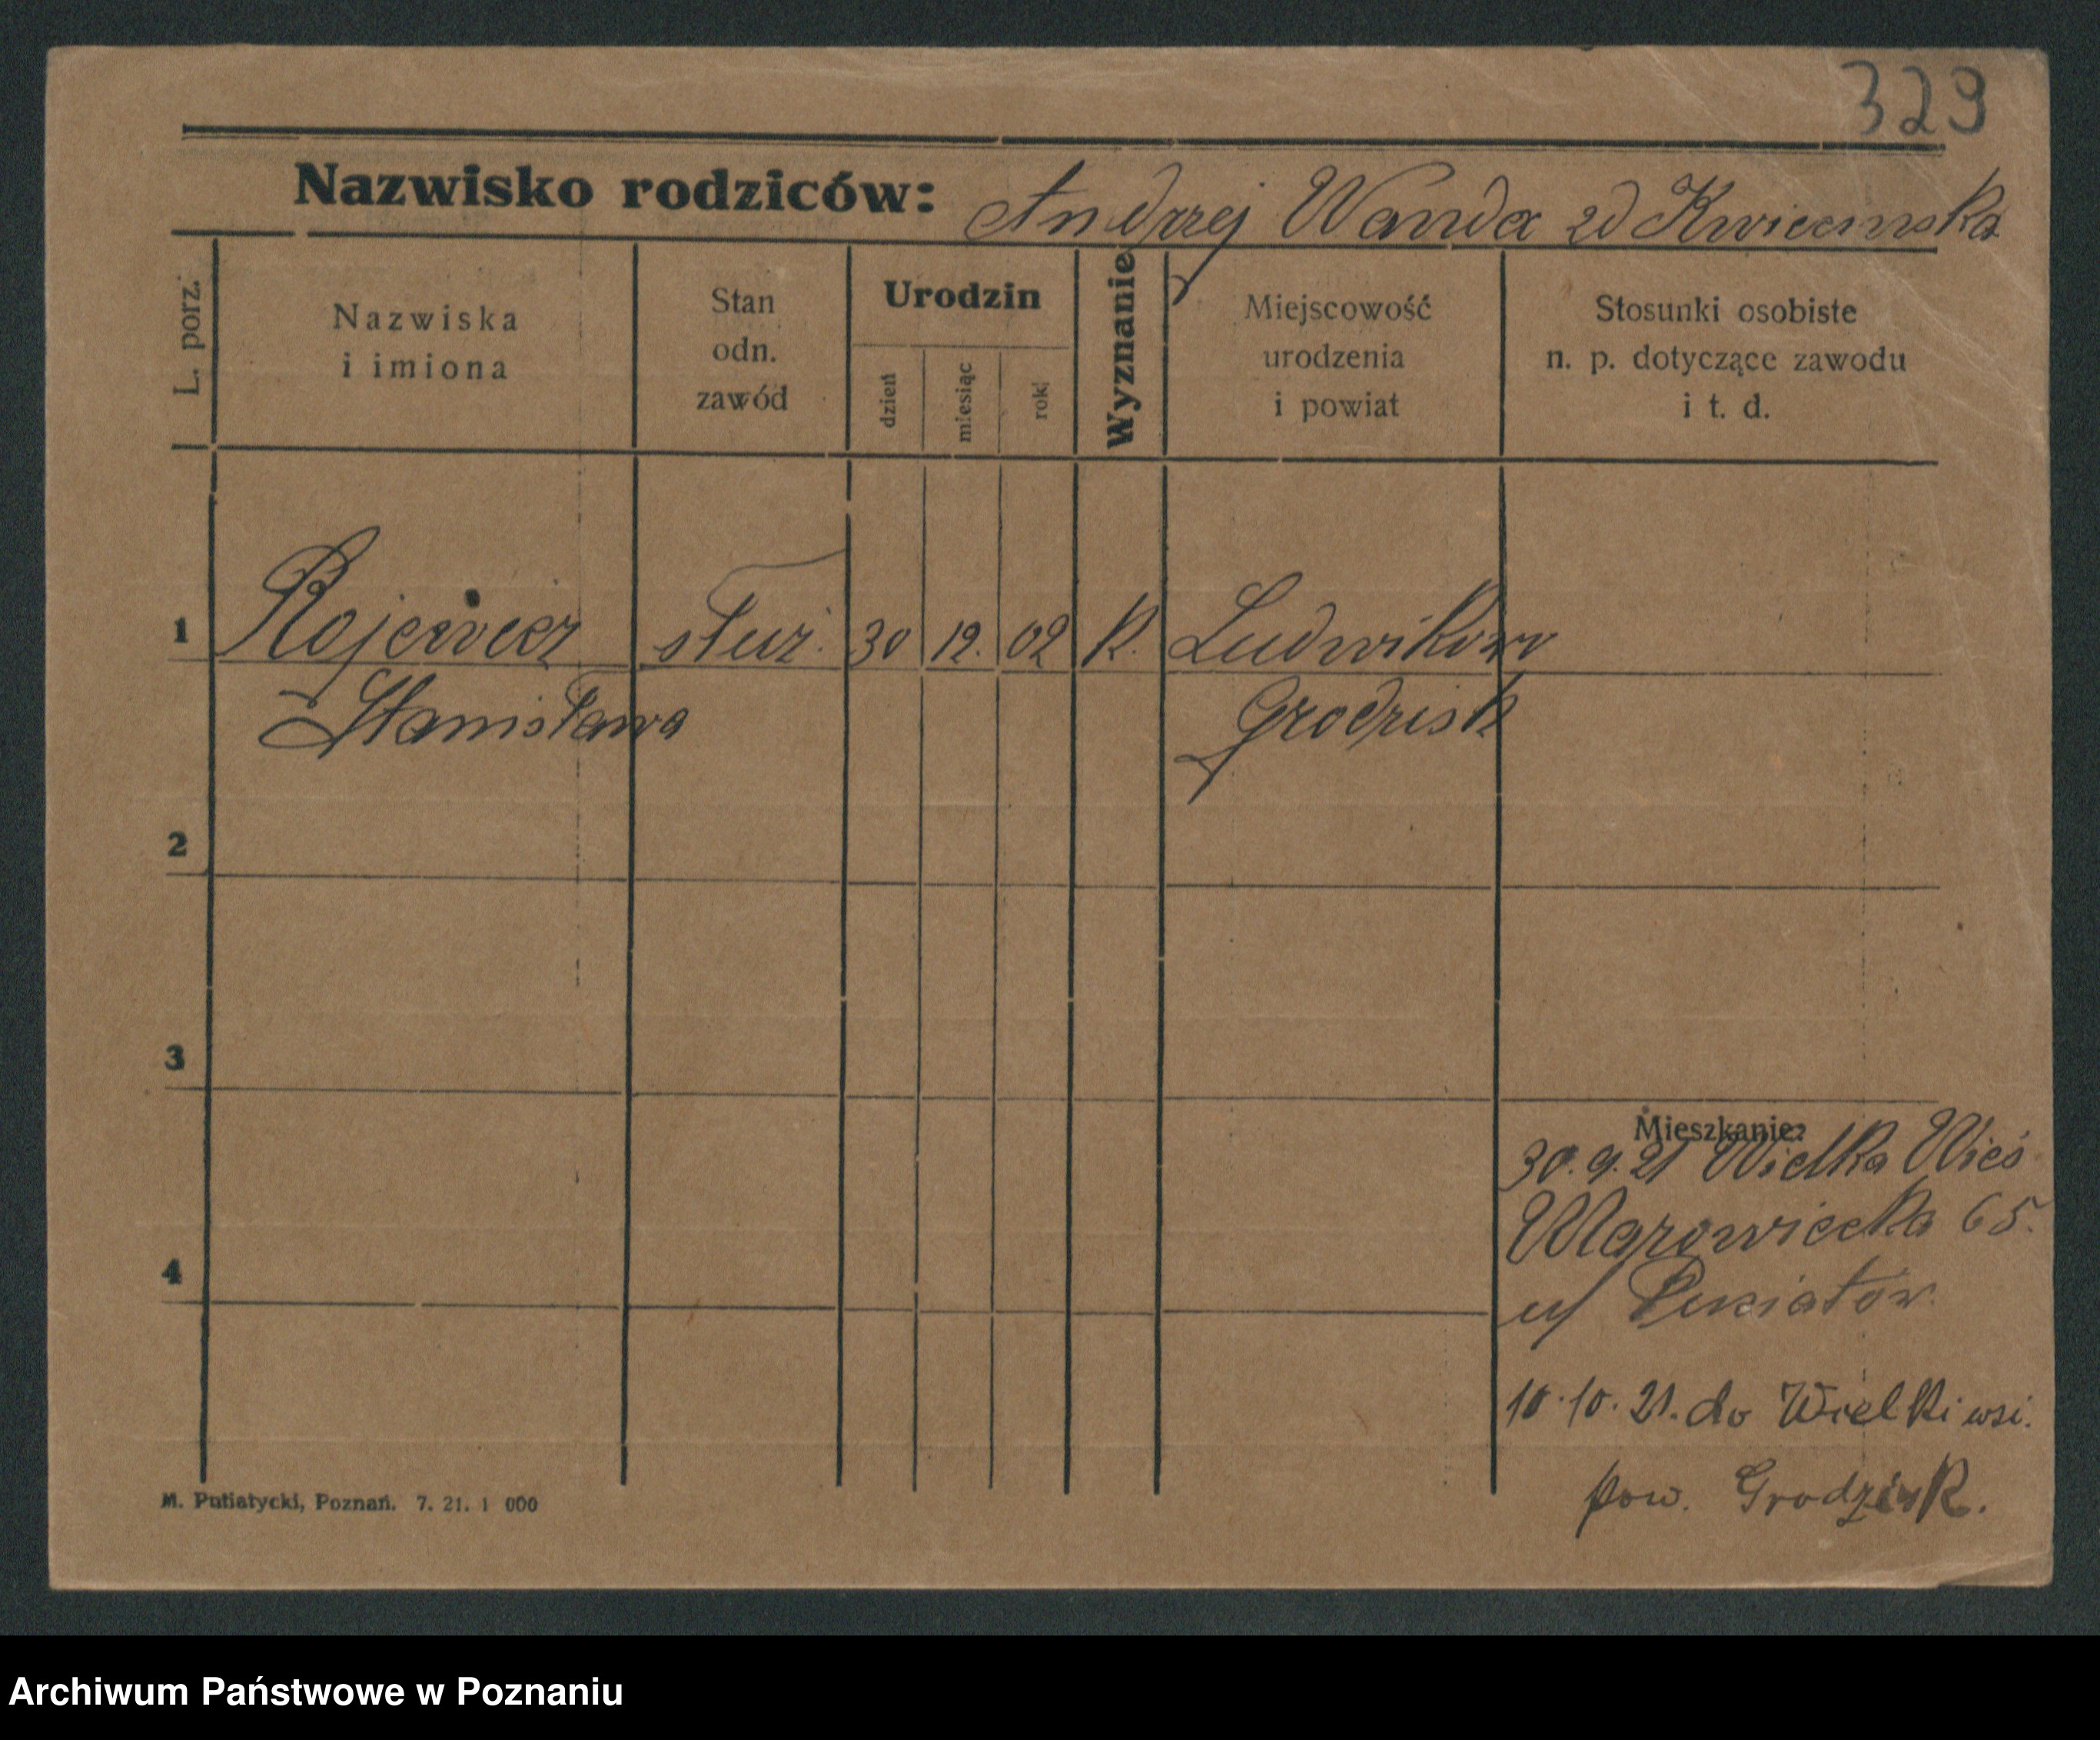 329
Nazwisko rodziców: Andrzej Wanda zd Kwiecinska
L. porz.
Nazwiska
i imiona
Stan
odn.
zawód
Urodzin
dzień
miesiąc
rok
Wyznanie
Miejscowość
urodzenia
i powiat
Stosunki osobiste
n. p. dotyczące zawodu
i t. d.
1 Rojewicz służ. 30 12. 02 k. Ludwikowo
Stanisława Grodzisk
2
3
Mieszkanie:
30.9.21 Wielka Wieś
Mazowiecka 65.
4
10.10.21. do Wielki wsi.
pow. Grodzisk.
M. Putiatycki, Poznań. 7. 21. 1 000
Archiwum Państwowe w Poznaniu